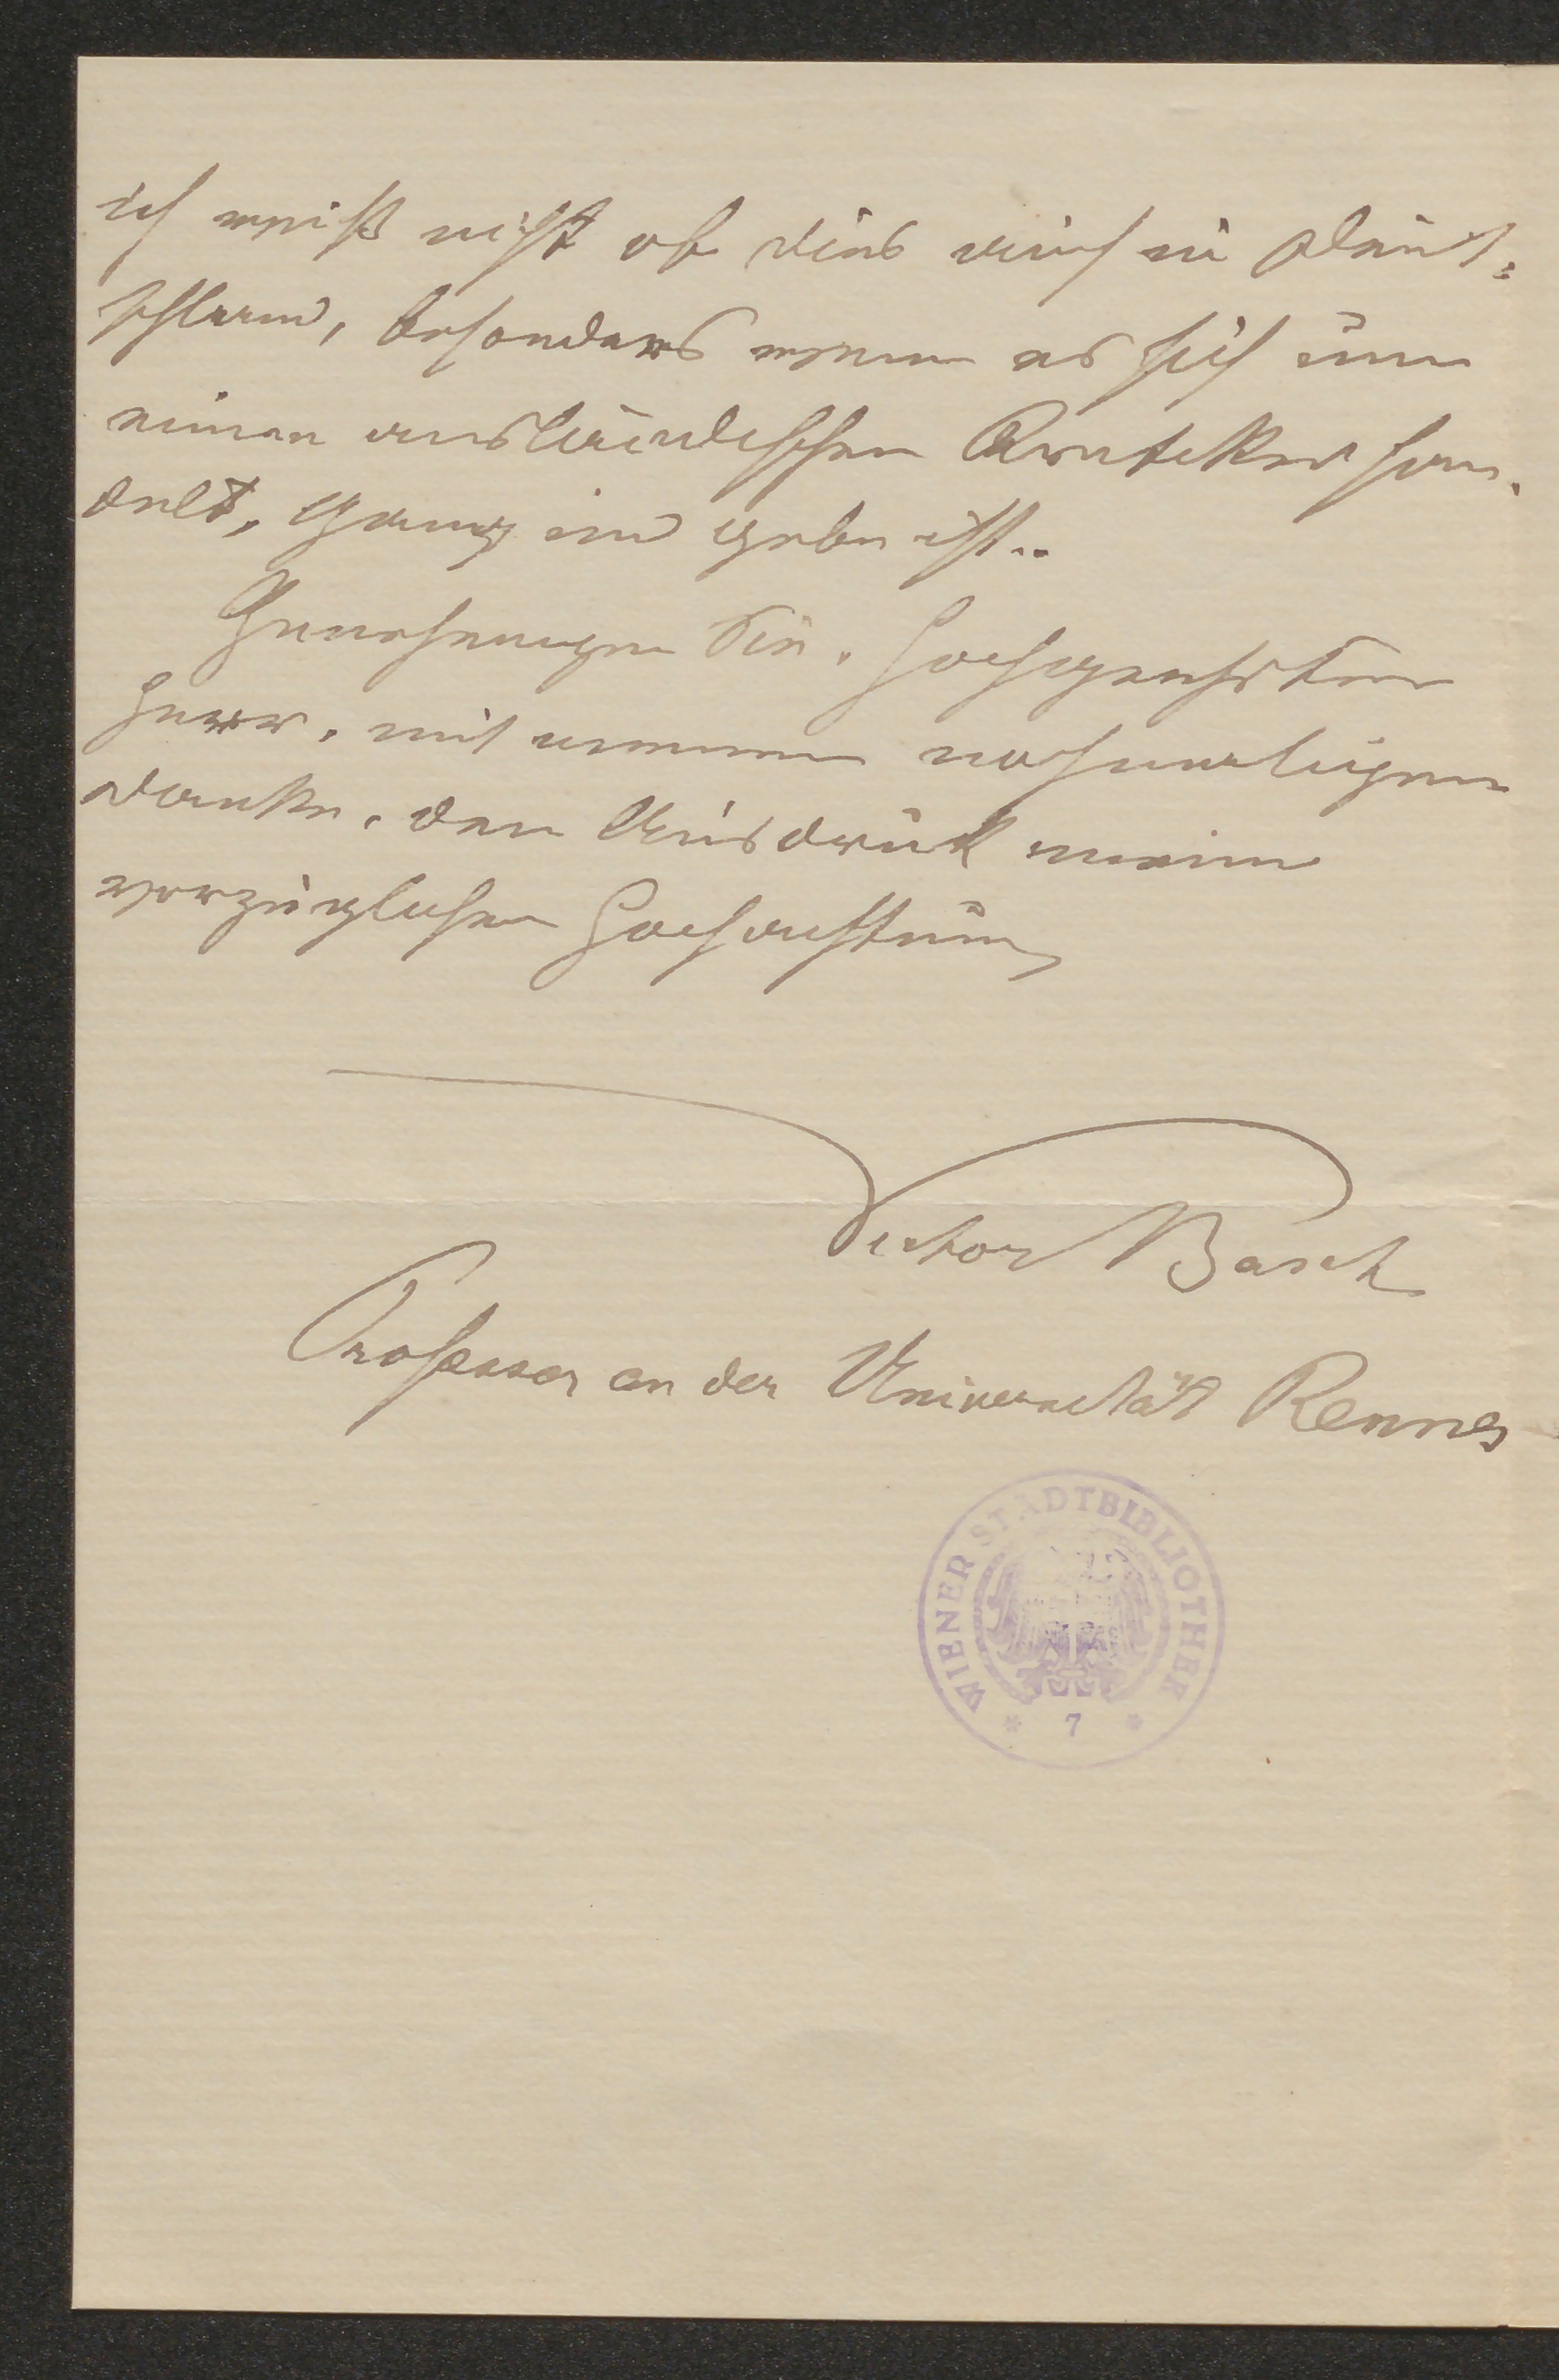 ich weiß nicht ob dies auch in Deut-
schland, besonders wenn es sich um
einen ausländischen Kritiker han-
delt, gang und gebe ist..
Genehmigen Sie, hochgeehrter
Herr, mit meinem nochmaligen
Danke, den Ausdruck meiner
vorzüglichen Hochachtung
Victor Basch
Professor an der Universität Rennes
WIENER STADTBIBLIOTHEK
* 7 *